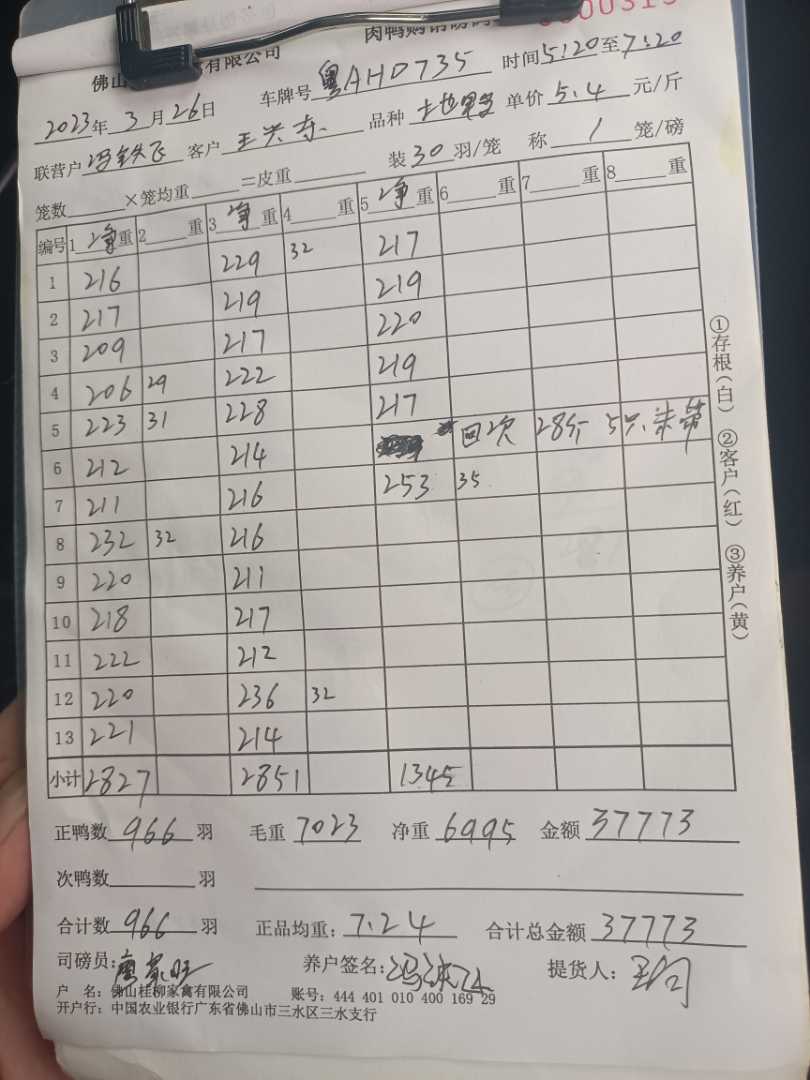 肉鸭购销
佛山 有限公司
2023年3月26日 车牌号粤AHD735 时间5:20至7:20
联营户冯铁飞 客户王兴东 品种 单价5.4元/斤
笼数 ×笼均重 =皮重 装30羽/笼 称1笼/磅
编号 1净重 2 重 3净重 4 重 5净重 6 重 7 重 8 重
1 216 229 32 217
2 217 219 219
3 209 217 220
4 206 29 222 219
5 223 31 228 217
6 212 214 回次 28斤 5只未带
7 211 216 253 35
8 232 32 216
9 220 211
10 218 217
11 222 212
12 220 236 32
13 221 214
小计 2827 2851 1345
正鸭数966羽 毛重7023 净重6995 金额37773
次鸭数 羽
合计数966羽 正品均重:7.24 合计总金额37773
司磅员: 养户签名: 提货人:
户 名:佛山桂柳家禽有限公司 账号:444 401 010 400 169 29
开户行:中国农业银行广东省佛山市三水区三水支行
①存根(白) ②客户(红) ③养户(黄)